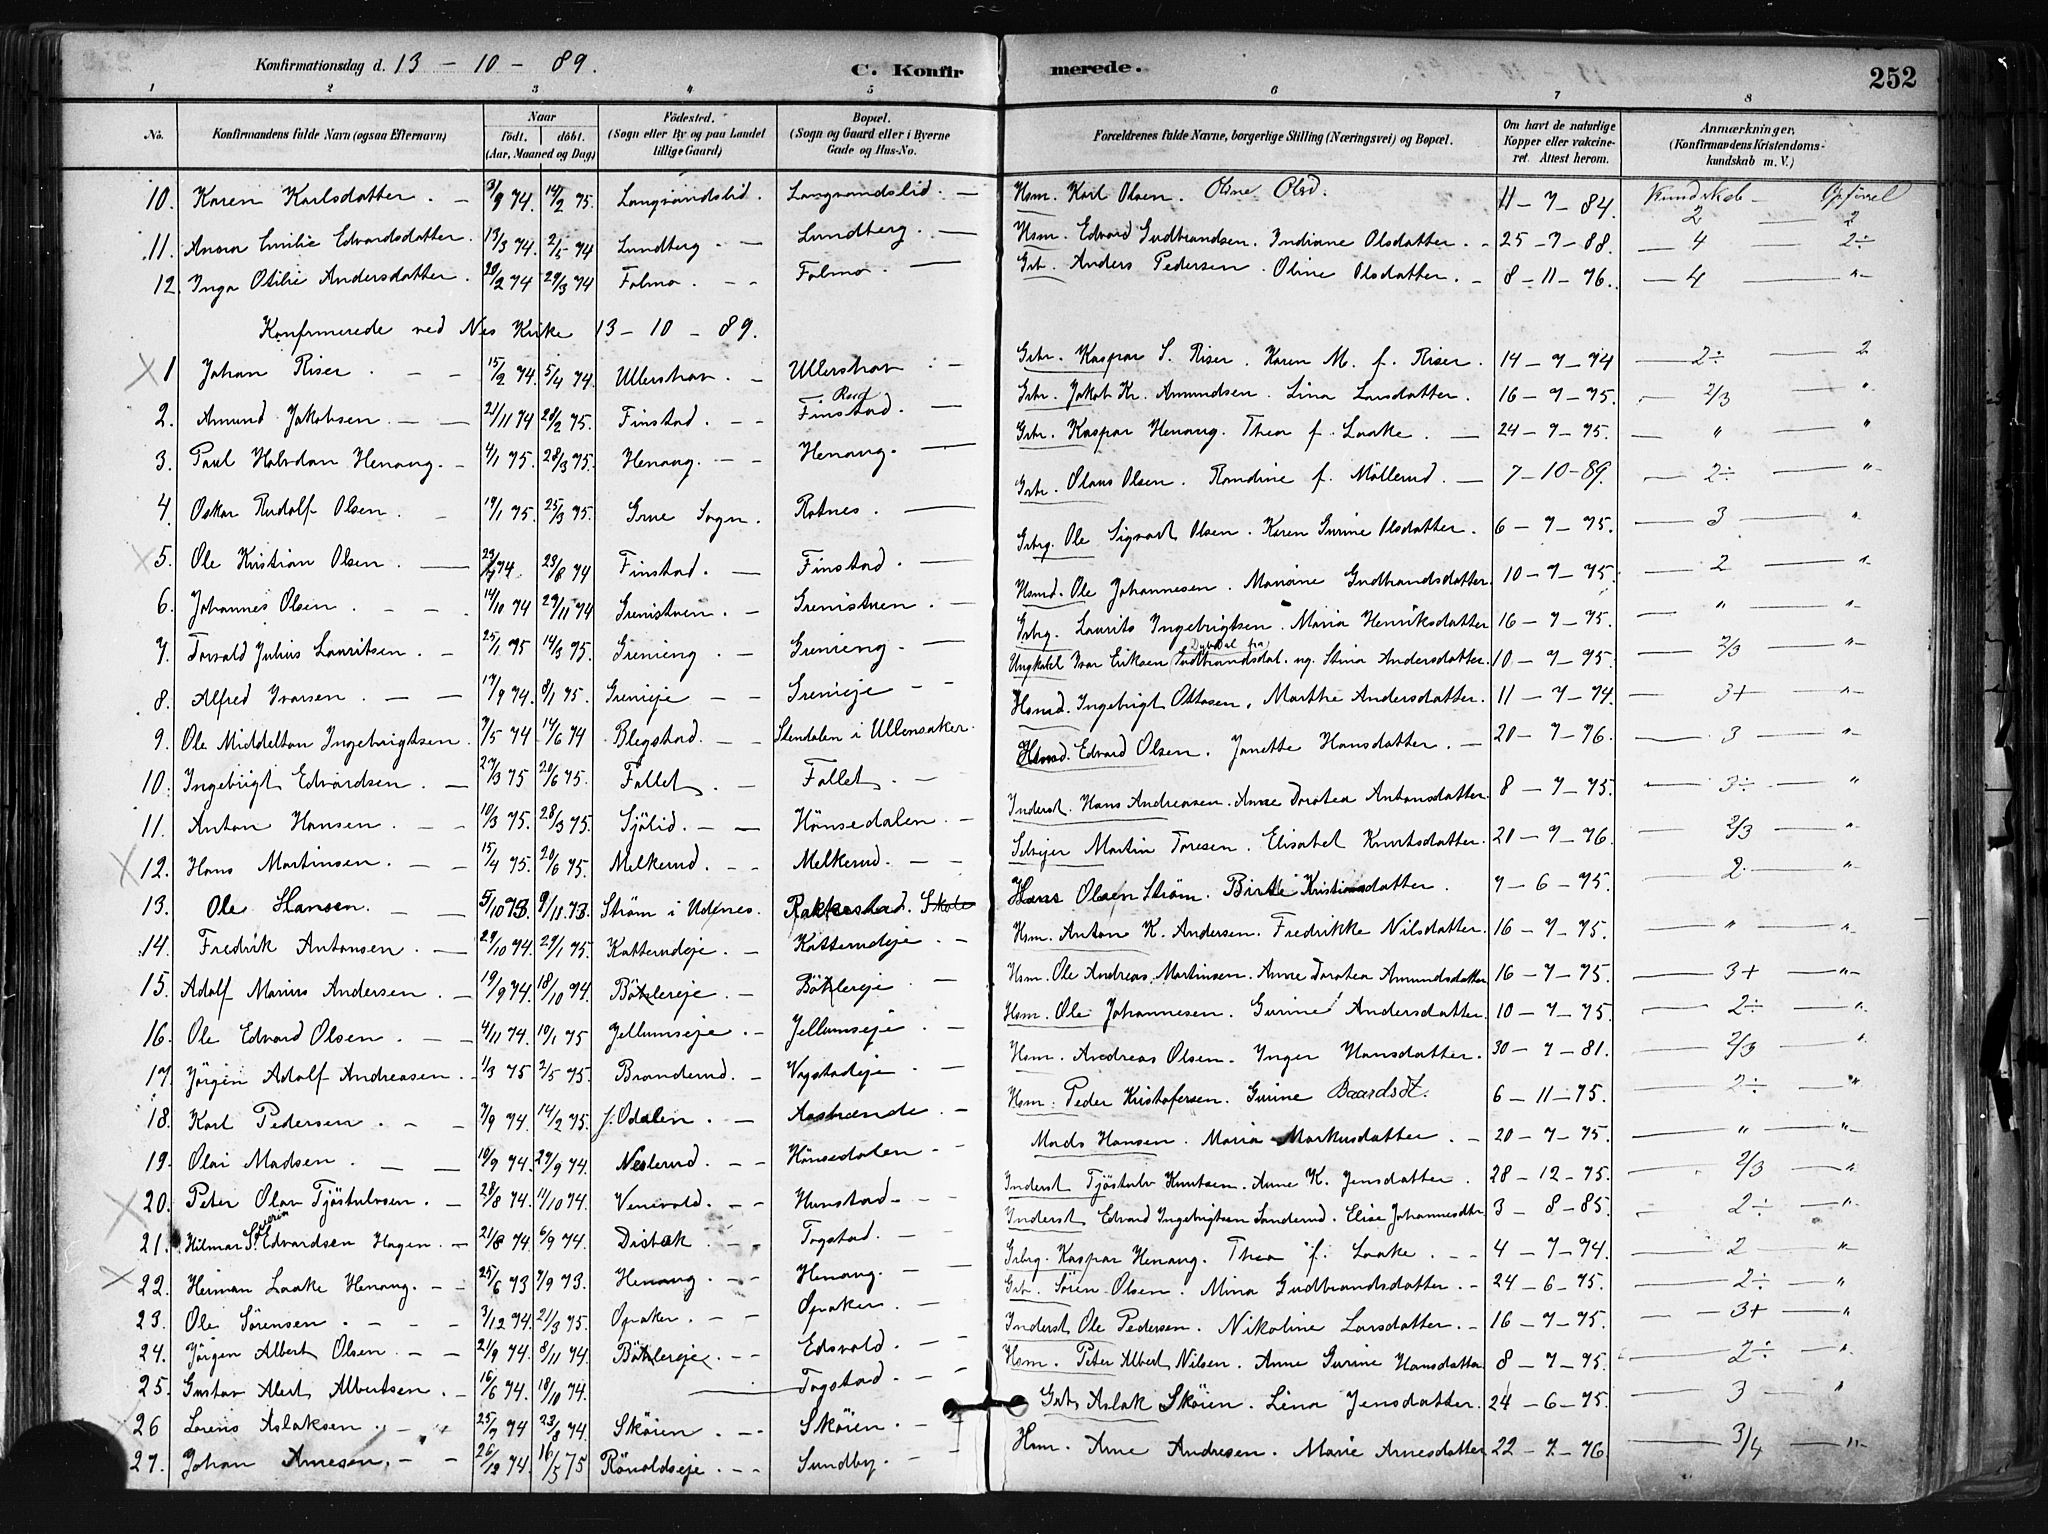 Konfirmationsdag d. 13 - 10 - 89. C. Konfirmerede. 252
1 2 3 4 5 6 7 8
No. Konfirmandens fulde Navn (ogsaa Efternavn) Naar födt. döbt. (Aar, Maaned og Dag) Födested. (Sogn eller By og paa Landet tillige Gaard) Bopæl. (Sogn og Gaard eller i Byerne Gade og Hus-No. Forældrenes fulde Navne, borgerlige Stilling (Næringsvei) og Bopæl. Om havt de naturlige Kopper eller vakcineret. Attest herom. Anmærkninger. (Konfirmandens Kristendomskundskab m. V.)
10. Karen Karlsdatter. 3/9 74. 14/2 75. Langrandslid. Langrandslid. Hsm. Karl Olsen. Oline Olsd. 11-7-84. Kundskab 2 Opførsel 2
11. Anna Emilie Edvardsdatter. 13/3 74. 2/5 74 Lundberg Lundberg Hsm. Edvard Gudbrandsen. Indiane Olsdatter. 25-7-88. 4 2÷
12. Inga Otilie Andersdatter. 20/2 74 29/3 74 Folmo Folmo Grbr. Anders Pedersen. Oline Olsdatter. 8-11-76. 4 "
Konfirmerede ved Nes Kirke 13 - 10 - 89.
1 Johan Riser. 15/2 74. 5/4 74. Ullershov. Ullershov Grbr. Kaspar S. Riser. Karen M. f. Riser. 14-7-74 2÷ 2
2. Amund Jakobsen. 21/11 74 28/2 75. Finstad. Finstad. Rud Grbr. Jakob Kr. Amundsen. Lina Larsdatter. 16-7-75. 2/3 "
3. Paul Halvdan Henaug. 4/1 75. 28/3 75. Henaug. Henaug. Grbr. Kaspar Henaug. Thea f. Laake. 24-7-75. " "
4. Oskar Rudolf Olsen. 19/1 75. 25/3 75. Grue Sogn. Rotnes. Grbr. Olaus Olsen. Randine f. Möllerud. 7-10-89. 2÷ "
5. Ole Kristian Olsen. 74. 23/8 74 Finstad. Finstad. Grbrg. Ole Sigvart Olsen. Karen Gurine Olsdatter. 6-7-75. 3 "
6. Johannes Olsen. 14/10 74 29/11 74 Grenistuen. Grenistuen. Hsmd. Ole Johannesen. Mariane Gudbrandsdatter. 10-7-75. 2 "
7. Torvald Julius Lauritsen. 25/1 75 14/3 75. Grenieng. Grenieng. Grbrg. Laurits Ingebrigtsen. Maria Henriksdatter 16-7-75. " "
8. Alfred Ivarsen. 17/9 74. 8/1 75. Grenieje Grenieje Ungkarl Ivar Eriksen Gudbrandsdal. ug. Stina Andersdatter. 10-7-75. 2/3 "
9. Ole Middelton Ingebrigtsen. 7/5 74 14/6 74 Blegstad. Stendalen i Ullensaker. Hsmd. Ingebrigt Ottosen. Marthe Andersdatter. 11-7-74. 3+ "
10. Ingebrigt Edvardsen. 27/3 75 20/6 75. Fallet. Fallet. Hsmd. Edvard Olsen. Janette Hansdatter. 20-7-76. 3 "
11. Anton Hansen. 10/3 75. 28/3 75. Sjölid. Hönsedalen. Inderst. Hans Andreasen. Anne Dorotea Antonsdatter. 8-7-75. 3÷ "
12. Hans Martinsen. 15/4 75. 20/6 75. Melkerud. Melkerud. Selvejer Martin Toresen. Elisabet Knutsdatter. 20-7-76. 2/3 "
13. Ole Hansen. 5/10 73. 9/11 73. Ström i Udnes. Rakkestad. Skole Hans Olsen Ström. Birte Kristiansdatter. 7-6-75. 2 "
14. Fredrik Antonsen. 29/10 74. 24/1 75. Katterudeje. Katterudeje. Hsm. Anton K. Andersen. Fredrikke Nilsdatter. 16-7-75. " "
15. Adolf Marius Andersen. 19/9 74. 18/10 74. Bötlereje. Bötlereje. Hsm. Ole Andreas Martinsen. Anne Dorotea Amundsdatter 16-7-75. 3+ "
16. Ole Edvard Olsen. 4/11 74. 10/1 75 Jellumseje. Jellumseje Hsm. Ole Johannesen. Gurine Andersdatter. 10-7-75. 2÷ "
17. Jörgen Adolf Andreasen. 1/3 75 2/5 75. Branderud. Vogstadeje. Hsm. Andreas Olsen. Inger Hansdatter. 30-7-81. 2/3 "
18. Karl Pedersen. 7/9 74. 14/2 75. s. Odalen. Aastrænde. Hsm. Peder Kristofersen. Gurine Baardsdt. 6-11-75. 2÷ "
19. Olai Madsen. 10/9 74. 27/9 74. Neslerud. Hönsedalen. Mads Hansen. Maria Markusdatter. 20-7-75. " "
20. Peter Olav Tjöstulvsen. 28/8 74. 11/10 74. Venevold. Hunstad. Inderst Tjöstulv Knutsen. Anne K. Jensdatter. 28-12-75. 2/3 "
21. Hilmar Severin Edvardsen Hagen. 21/8 74. 6/9 74. Distak Togstad. Inderst Edvard Ingebrigtsen Sanderud. Elise Johannesdtr 3-8-85. 2÷ "
22. Herman Laake Henaug. 25/6 73 7/9 73. Henaug. Henaug. Grbrg. Kaspar Henaug. Thea f. Laake. 4-7-74. 2 "
23. Ole Sörensen. 3/12 74. 21/3 75. Opaker. Opaker. Grbr. Sören Olsen. Mina Gudbrandsdatter. 24-6-75. 2÷ "
24. Jörgen Albert Olsen. 21/9 74. 8/11 74. Bötlereje. Edsvold. Inderst Ole Pedersen. Nikoline Larsdatter. 16-7-75. 3+ "
25. Gustav Alert Albertsen. 16/6 74. 18/10 74. Togstad. Hsm. Peter Albert Nilsen. Anne Gurine Hansdatter 8-7-75. 2÷ "
26 Lorens Aslaksen. 25/7 74 23/8 74. Sköien. Sköien. Grbr Aslak Sköien. Lena Jensdatter. 24-6-75. 3 "
27. Johan Arnesen. 26/12 74. 16/5 75 Rönoldseje. Sundby. Hsm. Arne Andresen. Marie Arnesdatter 22-7-76. 3/4 "